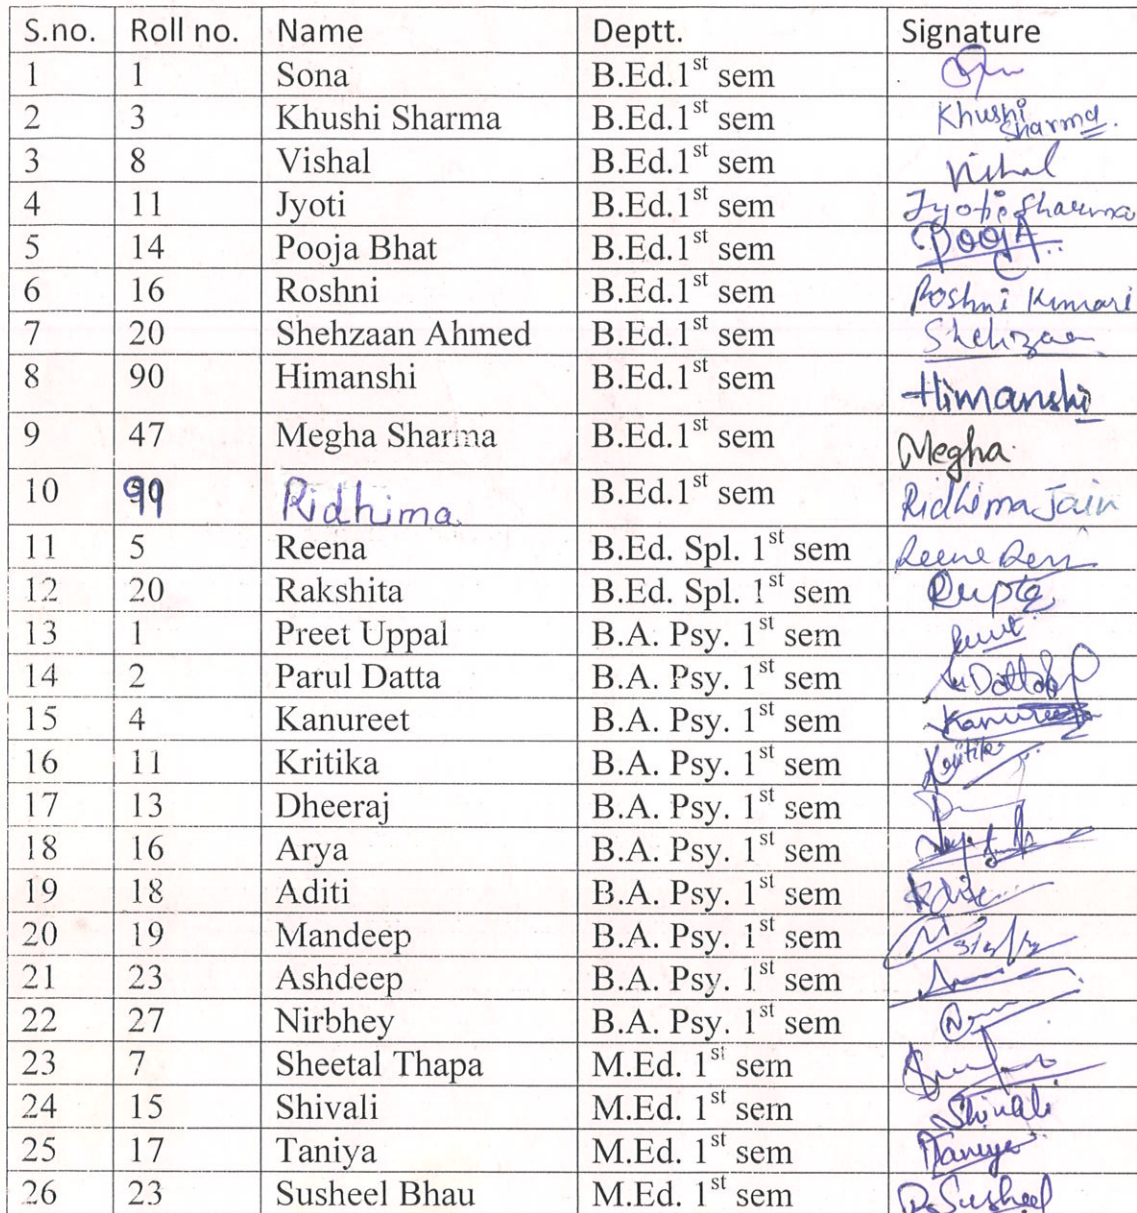 S.no. Roll no. Name Deptt. Signature
1 1 Sona B.Ed.1st sem
2 3 Khushi Sharma B.Ed.1st sem Khushi Sharma.
3 8 Vishal B.Ed.1st sem Vishal
4 11 Jyoti B.Ed.1st sem Jyoti Sharma
5 14 Pooja Bhat B.Ed.1st sem POOJA
6 16 Roshni B.Ed.1st sem Roshni Kumari
7 20 Shehzaan Ahmed B.Ed.1st sem Shehzaan
8 90 Himanshi B.Ed.1st sem Himanshi
9 47 Megha Sharma B.Ed.1st sem Megha.
10 99 Ridhima B.Ed.1st sem Ridhima Jain
11 5 Reena B.Ed. Spl. 1st sem
12 20 Rakshita B.Ed. Spl. 1st sem Rupta
13 1 Preet Uppal B.A. Psy. 1st sem
14 2 Parul Datta B.A. Psy. 1st sem
15 4 Kanureet B.A. Psy. 1st sem Kanureet
16 11 Kritika B.A. Psy. 1st sem Kritika
17 13 Dheeraj B.A. Psy. 1st sem
18 16 Arya B.A. Psy. 1st sem
19 18 Aditi B.A. Psy. 1st sem
20 19 Mandeep B.A. Psy. 1st sem
21 23 Ashdeep B.A. Psy. 1st sem
22 27 Nirbhey B.A. Psy. 1st sem
23 7 Sheetal Thapa M.Ed. 1st sem
24 15 Shivali M.Ed. 1st sem Shivali
25 17 Taniya M.Ed. 1st sem Taniya
26 23 Susheel Bhau M.Ed. 1st sem Susheel